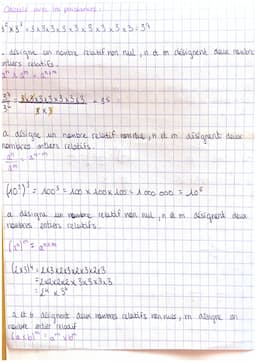 Calculer avec les puissances :
3⁵ × 3⁴ = 3 × 3 × 3 × 3 × 3 × 3 × 3 × 3 × 3 = 3⁹
a désigne un nombre relatif non nul, n et m désignent deux nombres
entiers relatifs.
aⁿ × aᵐ = aⁿ⁺ᵐ
= 3 × 3 × 3 × 3 × 3 × 3 × 3 = 3⁵
3 × 3
a désigne un nombre relatif non nul, n et m désignent deux
nombres entiers relatifs.
= aⁿ⁻ᵐ
(10²)³ = 100³ = 100 × 100 × 100 = 1 000 000 = 10⁶
a désigne un nombre relatif non nul, n et m désignent deux
nombres entiers relatifs.
(aⁿ)ᵐ = aⁿˣᵐ
(2×3)⁴ = 2×3×2×3×2×3×2×3
= 2×2×2×2×3×3×3×3
= 2⁴ × 3⁴
a et b désignent deux nombres relatifs non nuls, m désigne un
nombre entier relatif
(a×b)ᵐ = aᵐ × bᵐ